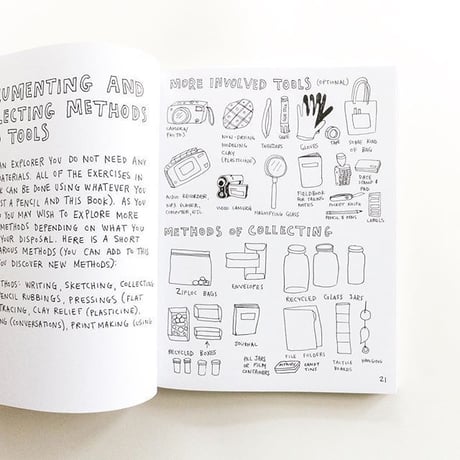 CUMENTING AND
LECTING METHODS
TOOLS
AN EXPLORER YOU DO NOT NEED ANY
MATERIALS. ALL OF THE EXERCISES IN
K CAN BE DONE USING WHATEVER YOU
ST A PENCIL AND THIS BOOK). AS YOU
YOU MAY WISH TO EXPLORE MORE
METHODS DEPENDING ON WHAT YOU
YOUR DISPOSAL. HERE IS A SHORT
ARIOUS METHODS (YOU CAN ADD TO THIS
OU DISCOVER NEW METHODS):
THODS: WRITING, SKETCHING, COLLECTING
PENCIL RUBBINGS, PRESSINGS (FLAT
TRACING, CLAY RELIEF (PLASTICINE),
NG (CONVERSATIONS), PRINT MAKING (USING
MORE INVOLVED TOOLS (OPTIONAL)
CAMERA/
PHOTOS
NON-DRYING
MODELING
CLAY
(PLASTICINE)
TWEEZERS
GLUE
GLOVES
TAPE
SOME KIND
OF BAG
AUDIO RECORDER,
COMPUTER, ETC.
VIDEO CAMERA
MAGNIFYING GLASS
FIELDBOOK
FOR TAKING
NOTES
POCKET KNIFE
PENCIL & PENS
DATE
STAMP &
PAD
LABELS
METHODS OF COLLECTING
ZIPLOC BAGS
ENVELOPES
RECYCLED GLASS JARS
RECYCLED BOXES
JOURNAL
FILE FOLDERS
PILL JARS
OR FILM
CONTAINERS
CANDY
TINS
TACTILE
BOARDS
HANGING
21